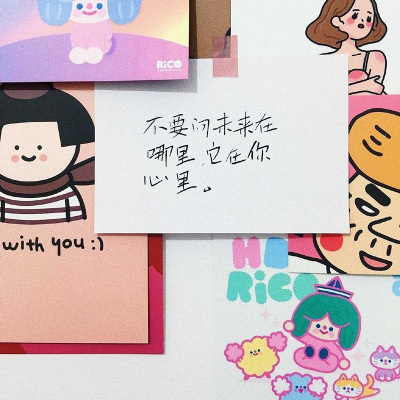 RiCO
不要问未来在
哪里,它在你
心里。
with you :)
RiCO